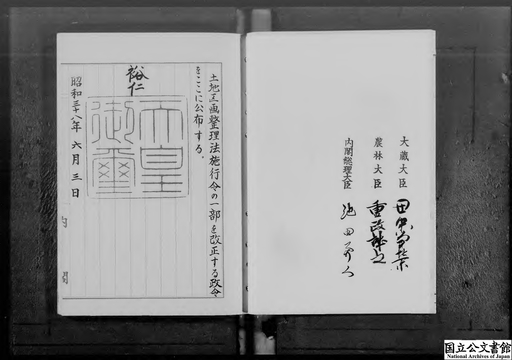 土地区画整理法施行令の一部を改正する政令
をここに公布する。
裕仁
天皇
御璽
昭和三十八年 六月 三日
内閣
大蔵大臣 田中角栄
農林大臣 重政誠之
内閣総理大臣 池田勇人
国立公文書館
National Archives of Japan